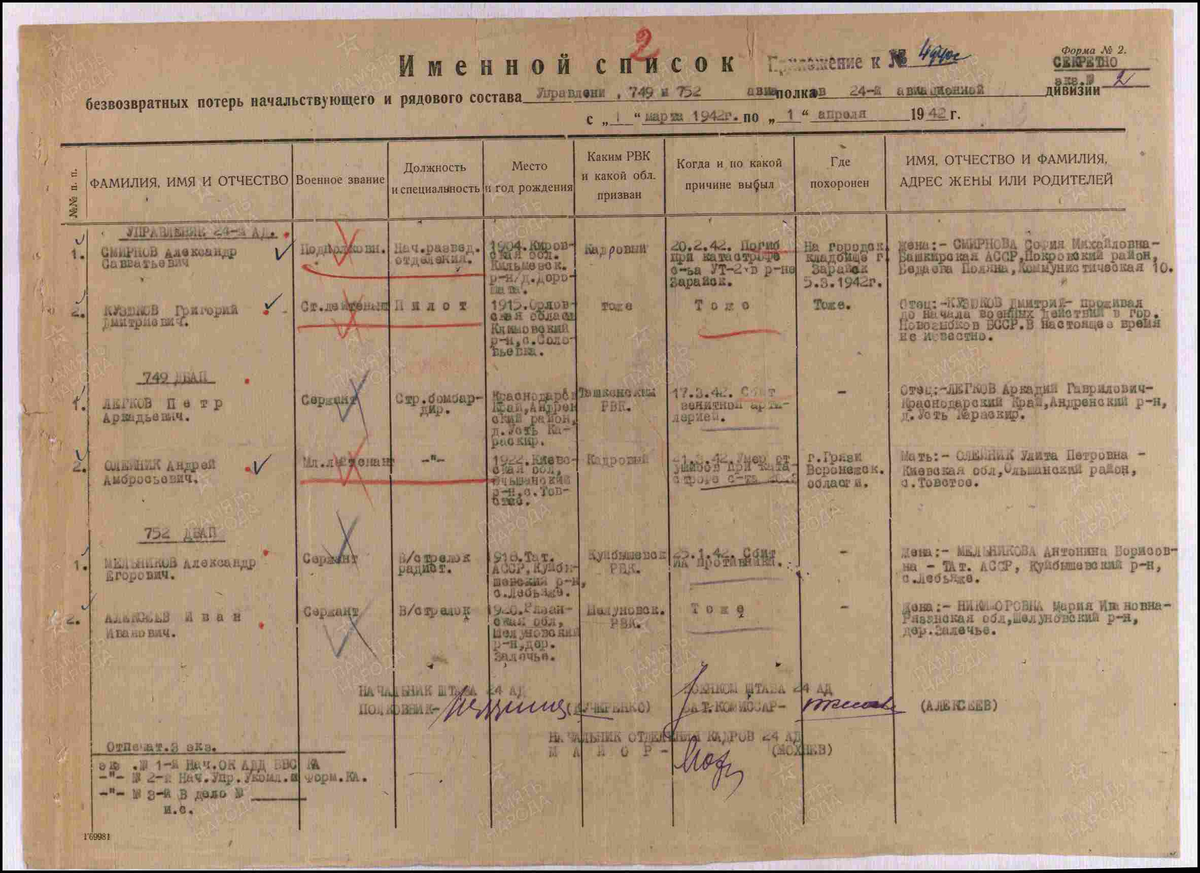 2
Форма № 2.
Именной список Приложение к №
СЕКРЕТНО
экз.№ 2
безвозвратных потерь начальствующего и рядового состава Управлени, 749 и 752 авиаполков 24-й авиационной дивизии
с „1" марта 1942г. по „1" апреля 1942 г.
№№ п. п.
ФАМИЛИЯ, ИМЯ И ОТЧЕСТВО
Военное звание
Должность
и специальность
Место
и год рождения
Каким РВК
и какой обл.
призван
Когда и по какой
причине выбыл
Где
похоронен
ИМЯ, ОТЧЕСТВО И ФАМИЛИЯ,
АДРЕС ЖЕНЫ ИЛИ РОДИТЕЛЕЙ
УПРАВЛЕНИЕ 24-й АД.
1.
СМИРНОВ Александр
Савватьевич
Подполковн.
Нач.развед.
отделения.
1904.Киров-
ская обл.
Кильмезск.
р-н,д.Доро-
шата.
Кадровый
20.2.42. Погиб
при катастрофе
с-за УТ-2 в р-не
Зарайск.
На городск.
кладбище г.
Зарайск
5.3.1942г.
Жена:- СМИРНОВА София Михайловна-
Башкирская АССР,Покровский район,
Бедеева Поляна,Коммунистическая 10.
2.
КУЗЮКОВ Григорий
Дмитриевич.
Ст.лейтенант
Пилот
1915.Орлов-
ская область
Климовский
р-н,с.Соло-
вьевка.
тоже
Тоже
Тоже.
Отец:-КУЗЮКОВ Дмитрий- проживал
до начала военных действий в гор.
Новозыбков БССР.В настоящее время
не известно.
749 ДБАП
1.
ЛЕГКОВ Петр
Аркадьевич.
Сержант
Стр.бомбар-
дир.
Краснодарск
Край,Андрен
ский район,
д.Усть Ка-
раскир.
Ташкенский
РВК.
17.3.42. Сбит
зенитной артил-
лерией.
-
Отец:-ЛЕГКОВ Аркадий Гаврилович-
Краснодарский Край,Андренский р-н,
д. Усть Караскир.
2.
ОЛЕЙНИК Андрей
Амбросьевич.
Мл.лейтенант
-"-
1922.Киевс-
ская обл,
Ольшанский
р-н,с.Товс-
тое.
Кадровый
21.3.42.Умер от
ушибов при ката-
строфе
г.Грязи
Воронежск.
области.
Мать:- ОЛЕЙНИК Улита Петровна -
Киевская обл,Ольшанский район,
с.Товстое.
752 ДБАП
1.
МЕЛЬНИКОВ Александр
Егорович.
Сержант
В/стрелок
радист.
1918.Тат.
АССР,Куйбы-
шевский р-н,
с.Лебяже.
Куйбышевск
РВК.
25.1.42. Сбит
ИА противника.
-
Жена:- МЕЛЬНИКОВА Антонина Борисов-
на - ТАТ. АССР, Куйбышевский р-н,
с.Лебяже.
2.
АЛЕКСЕЕВ Иван
Иванович.
Сержант
В/стрелок
1920.Рязан-
ская обл,
Шелуновский
р-н,дер.
Залечье.
Шелуновск.
РВК.
Тоже
-
Жена:- НИКИФОРОВНА Мария Ивановна-
Рязанская обл,Шелуновский р-н,
дер.Залечье.
НАЧАЛЬНИК ШТАБА 24 АД
ПОЛКОВНИК- (КУЧЕРЕНКО)
ВОЕНКОМ ШТАБА 24 АД
БАТ.КОМИССАР- (АЛЕКСЕЕВ)
НАЧАЛЬНИК ОТДЕЛЕНИЯ КАДРОВ 24 АД
МАЙОР- (МОХНЕВ)
Отпечат.3 экз.
экз.№ 1-й Нач.ОК АДД ВВС КА
-"- № 2-й Нач.Упр.Укомл.и Форм.КА.
-"- № 3-й В дело №
и.с.
Г69981
ПАМЯТЬ НАРОДА